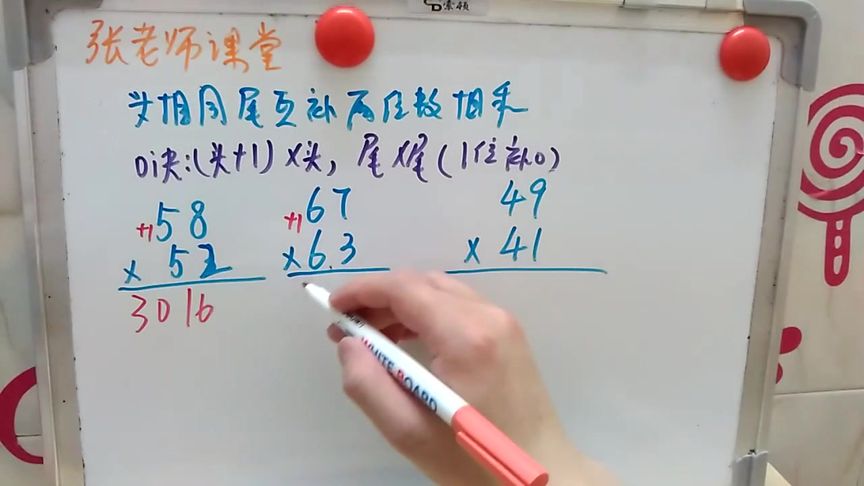 张老师课堂
头相同尾互补两位数相乘
口诀:(头+1)×头，尾×尾(1位补0)
+1 58 +1 67 49
× 52 × 63 × 41
3016
WHITE BOARD